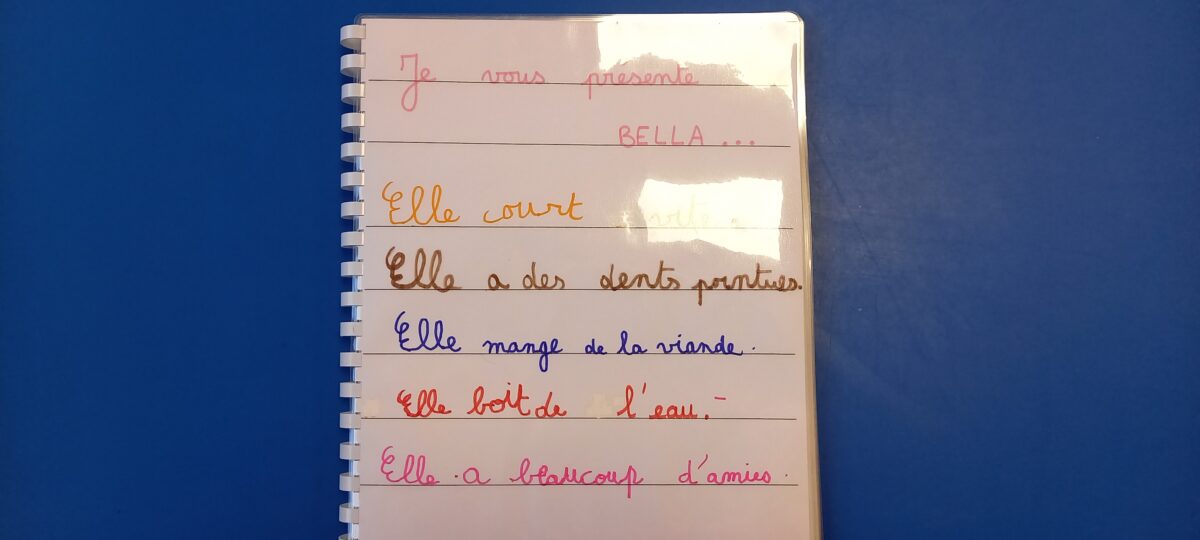 Je vous présente
BELLA ...
Elle court vite.
Elle a des dents pointues.
Elle mange de la viande.
Elle boit de l'eau.
Elle a beaucoup d'amies.